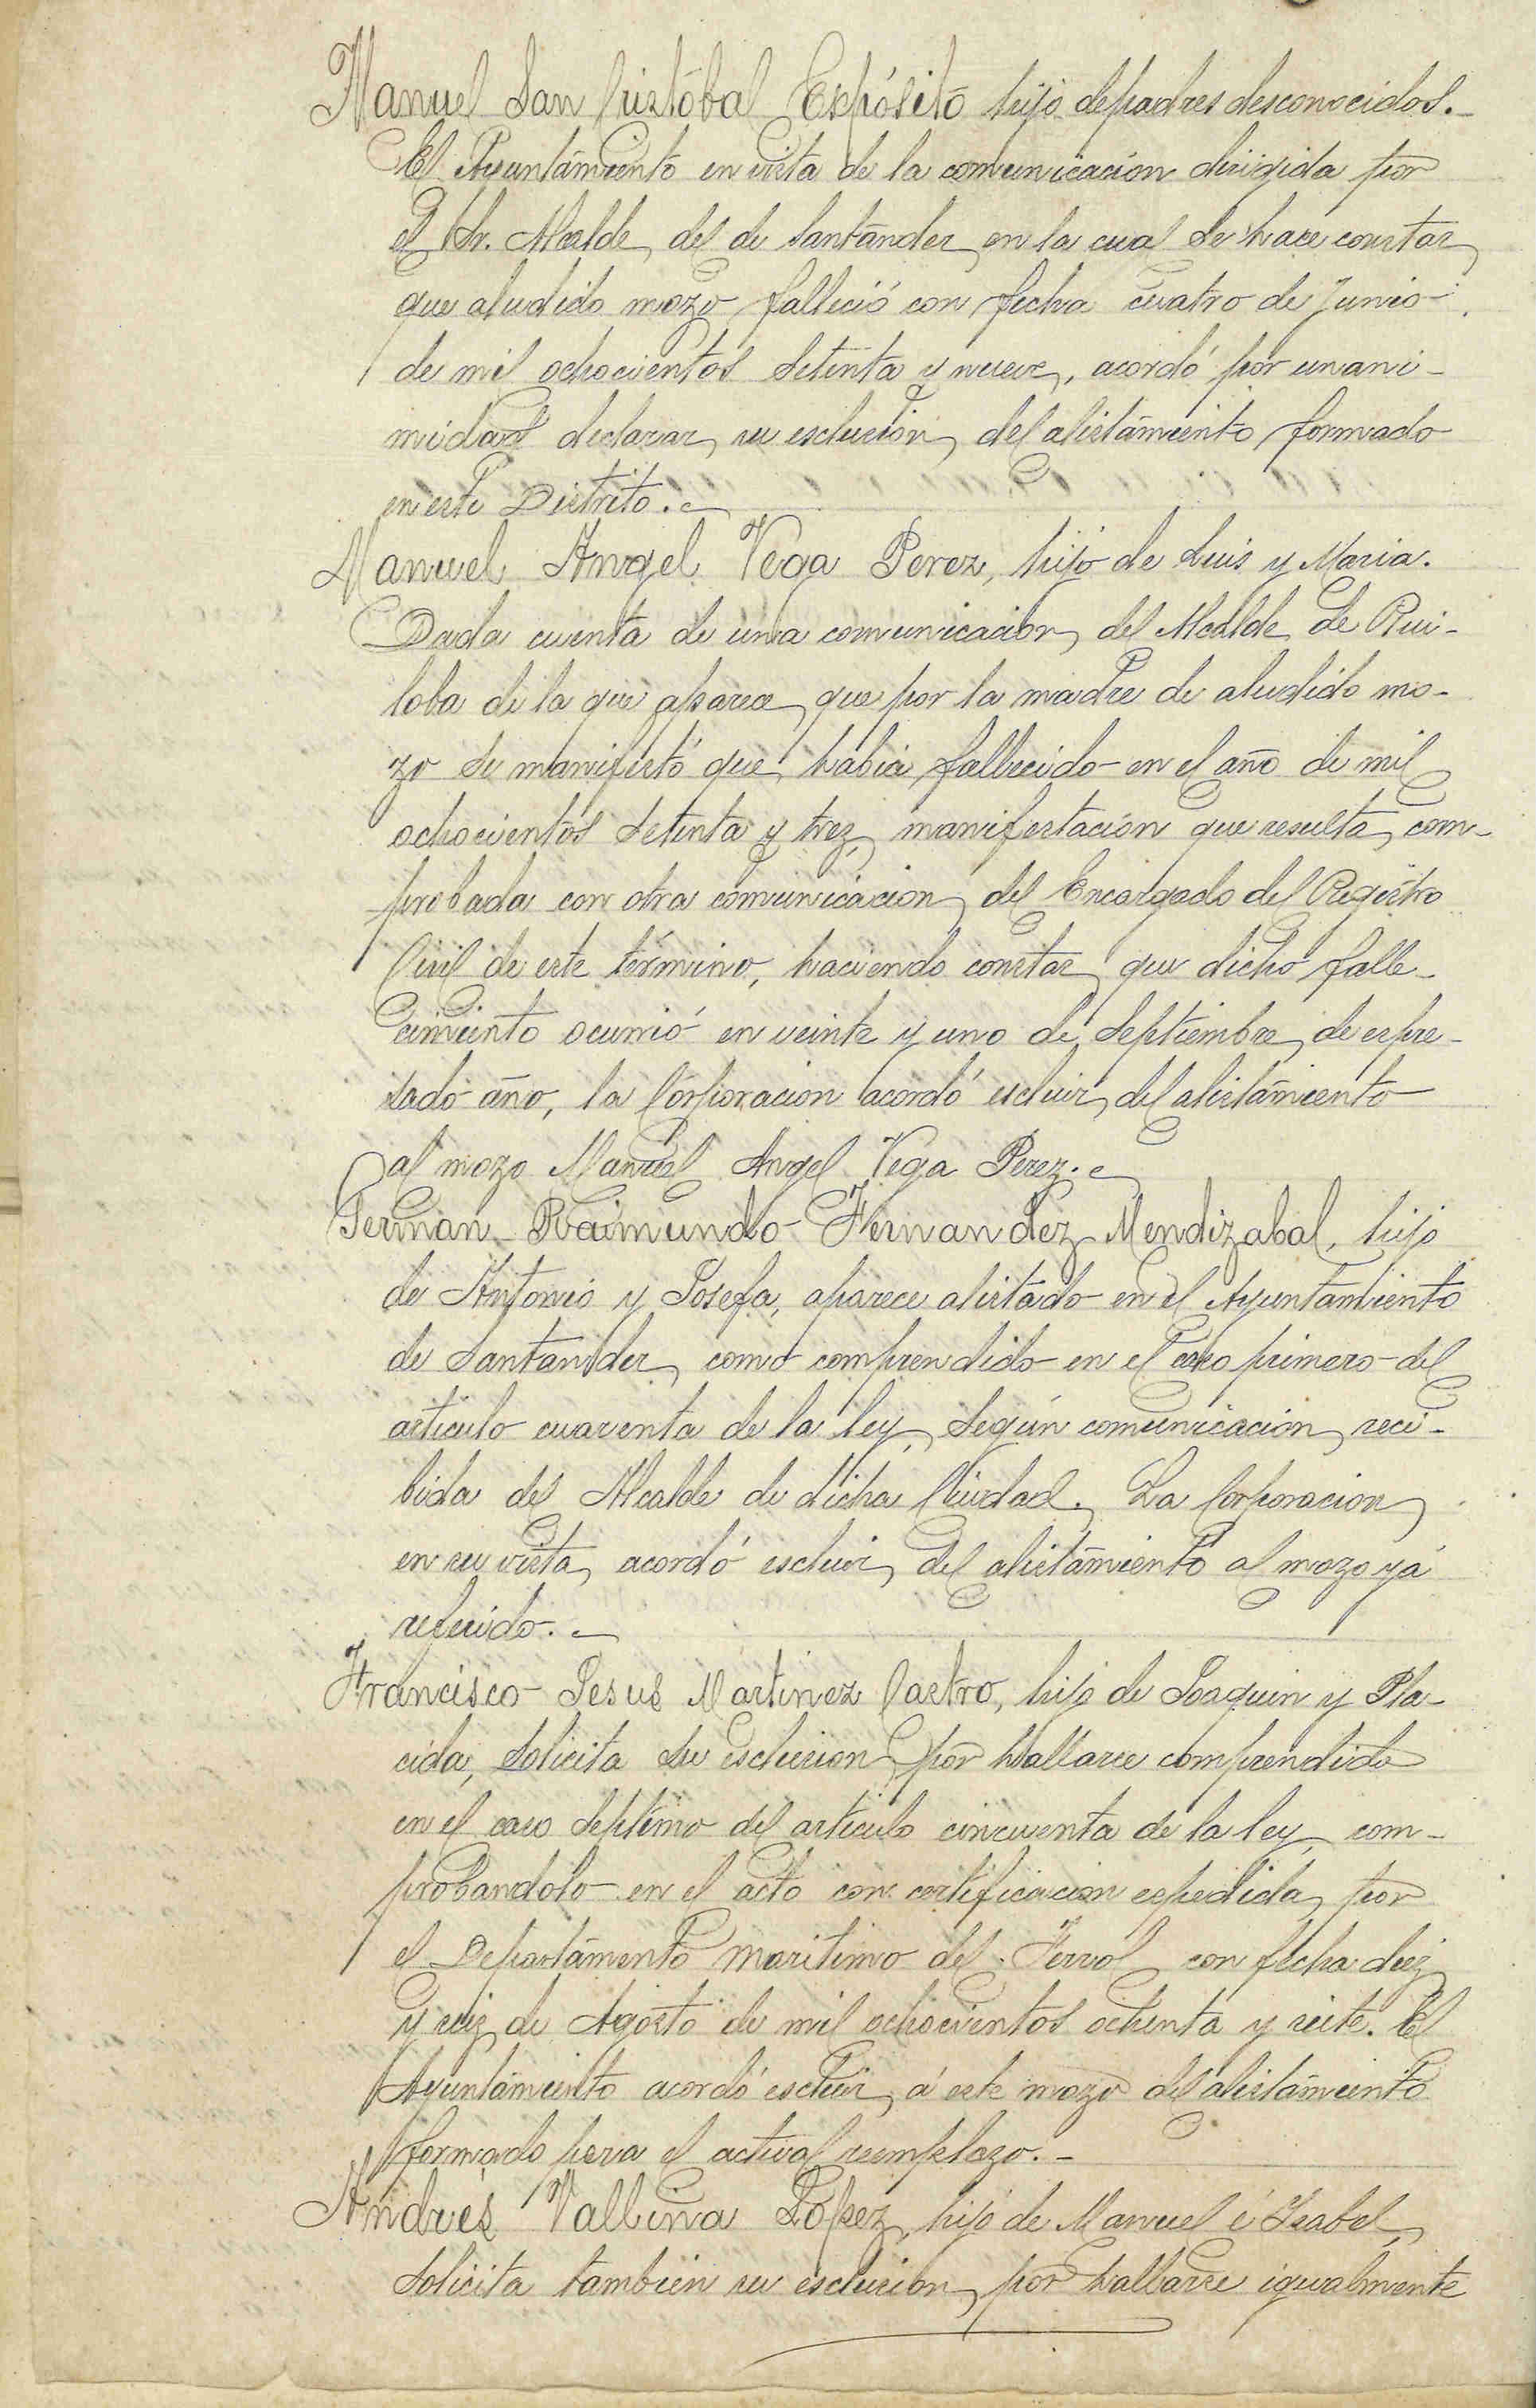 Manuel San Cristóbal Expósito hijo de padres desconocidos.-
El Ayuntamiento en vista de la comunicación dirigida por
el Sr. Alcalde del de Santander en la cual se hace constar
que aludido mozo falleció con fecha cuatro de Junio-
de mil ochocientos setenta y nueve, acordó por unani-
midad declarar su esclusión del alistamiento formado
en este Distrito.-
Manuel Angel Vega Perez, hijo de Luis y Maria.
Dada cuenta de una comunicacion del Alcalde de Rui-
loba de la que aparece que por la madre de aludido mo-
zo se manifestó que habia fallecido en el año de mil
ochocientos setenta y trez, manifestación que resulta com-
probada con otra comunicacion del Encargado del Registro
Civil de este término, haciendo constar que dicho falle-
cimiento ocurrió en veinte y uno de Septiembre de espre-
sado año, la Corporacion acordó escluir del alistamiento
al mozo Manuel Angel Vega Perez.-
German Raimundo Fernandez Mendizabal, hijo
de Antonio y Josefa, aparece alistado en el Ayuntamiento
de Santander como comprendido en el caso primero del
articulo cuarenta de la ley, según comunicacion reci-
bida del Alcalde de dicha Ciudad. La Corporacion
en su vista acordó escluir del alistamiento al mozo yá
referido.-
Francisco Jesus Martinez Castro, hijo de Joaquin y Pla-
cida, solicita su esclusion por hallarse comprendido
en el caso septimo del articulo cincuenta de la ley, com-
probandolo en el acto con certificacion espedida por
el Departamento maritimo del Ferrol con fecha diez
y seiz de Agosto de mil ochocientos ochenta y siete. El
Ayuntamiento acordó escluir á este mozo del alistamiento
formado para el actual reemplazo.-
Andrés Vallina López, hijo de Manuel é Isabel,
solicita tambien su esclusion por hallarse igualmente